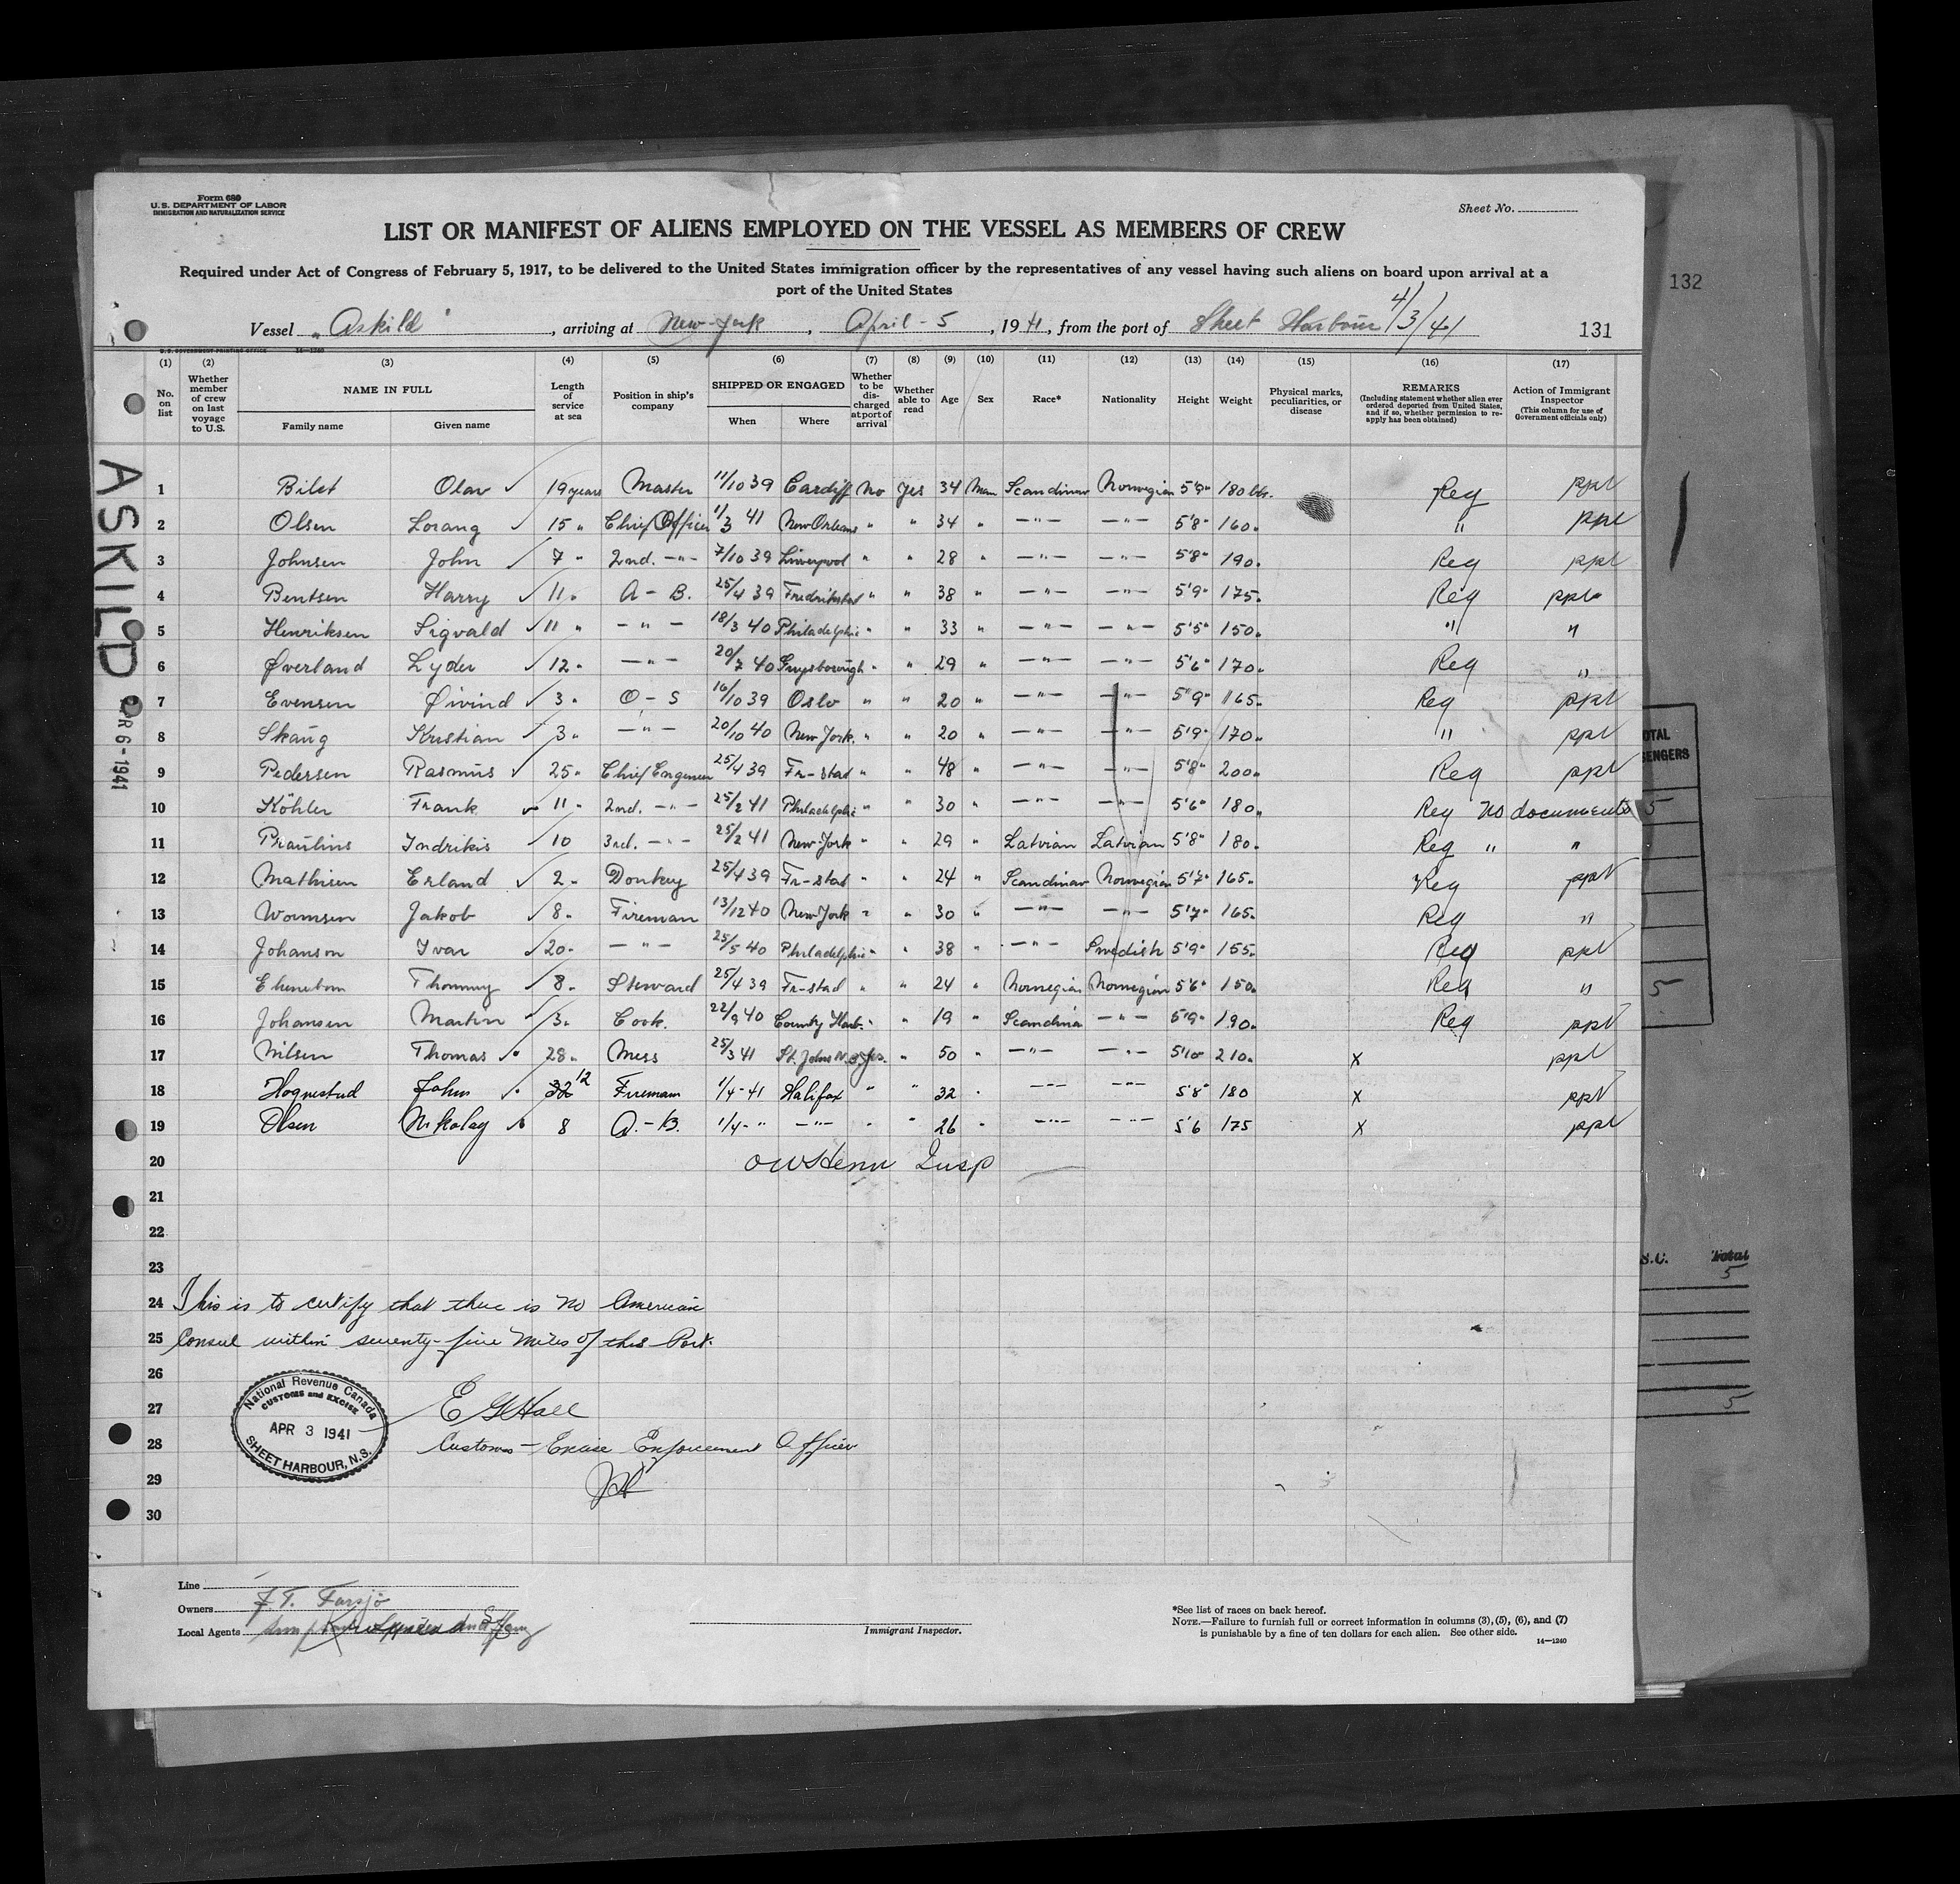 Form 680
U. S. DEPARTMENT OF LABOR
IMMIGRATION AND NATURALIZATION SERVICE
Sheet No.
LIST OR MANIFEST OF ALIENS EMPLOYED ON THE VESSEL AS MEMBERS OF CREW
Required under Act of Congress of February 5, 1917, to be delivered to the United States immigration officer by the representatives of any vessel having such aliens on board upon arrival at a
port of the United States
132
Vessel "Askild", arriving at New-York, April - 5, 1941, from the port of Sheet Harbour 4/3/41 131
U. S. GOVERNMENT PRINTING OFFICE 14—1240
(1) (2) (3) (4) (5) (6) (7) (8) (9) (10) (11) (12) (13) (14) (15) (16) (17)
No. on list
Whether member of crew on last voyage to U.S.
NAME IN FULL
Family name
Given name
Length of service at sea
Position in ship's company
SHIPPED OR ENGAGED
When
Where
Whether to be discharged at port of arrival
Whether able to read
Age
Sex
Race*
Nationality
Height
Weight
Physical marks, peculiarities, or disease
REMARKS
(Including statement whether alien ever ordered deported from United States, and if so, whether permission to reapply has been obtained)
Action of Immigrant Inspector
(This column for use of Government officials only)
ASKILD
APR 6-1941
1 Bilet Olav 19 years Master 11/10 39 Cardiff No Yes 34 Man Scandinav Norwegian 5'9" 180 lbs. Reg ppl
2 Olsen Lorang 15 " Chief Officer 11/3 41 New Orleans " " 34 " —"— —"— 5'8" 160 " " ppl
3 Johnsen John 7 " 2nd. —"— 7/10 39 Liverpool " " 28 " —"— —"— 5'8" 190 " Reg ppl
4 Bentsen Harry 11 " A - B. 25/4 39 Fredrikstad " " 38 " —"— —"— 5'9" 175 " Reg ppl
5 Henriksen Sigvald 11 " —"— 18/3 40 Philadelphia " " 33 " —"— —"— 5'5" 150 " " "
6 Øverland Lyder 12 " —"— 20/7 40 Guysborough " " 29 " —"— —"— 5'6" 170 " Reg "
7 Evensen Øivind 3 " O - S 16/10 39 Oslo " " 20 " —"— —"— 5'9" 165 " Reg ppl
8 Skaug Kristian 3 " —"— 20/10 40 New York. " " 20 " —"— —"— 5'9" 170 " " ppl
9 Pedersen Rasmus 25 " Chief Engineer 25/4 39 Fr-stad " " 48 " —"— —"— 5'8" 200 " Reg ppl
10 Köhler Frank 11 " 2nd. —"— 25/2 41 Philadelphia " " 30 " —"— —"— 5'6" 180 " Reg no documents
11 Praulins Indrikis 10 3rd. —"— 25/2 41 New-York " " 29 " Latvian Latvian 5'8" 180 " Reg " "
12 Mathisen Erland 2 " Donkey 25/4 39 Fr-stad " " 24 " Scandinav Norwegian 5'7" 165 " Reg ppl
13 Wormsen Jakob 8 " Fireman 13/12 40 New York " " 30 " —"— —"— 5'7" 165 " Reg "
14 Johanson Ivar 20 " —"— 25/5 40 Philadelphia " " 38 " —"— Swedish 5'9" 155 " Reg ppl
15 Thommy 8 " Steward 25/4 39 Fr-stad " " 24 " Norwegian Norwegian 5'6" 150 " Reg "
16 Johansen Martin 3 " Cook. 22/9 40 County Harb. " " 19 " Scandina —"— 5'9" 190 " Reg ppl
17 Nilsen Thomas 28 " Mess 25/3 41 St. Johns N.B. Yes. " 50 " —"— —"— 5'10" 210 " X ppl
18 Hognestad John 32 12 Fireman 1/4-41 Halifax " " 32 " —"— —"— 5'8" 180 X ppl
19 Olsen Nikolay 8 A.-B. 1/4-" —"— " " 26 " —"— —"— 5'6 175 X ppl
20 Insp
21
22
23
24 This is to certify that there is no American
25 Consul within seventy-five miles of this Port.
26
27 E G Hall
28 Customs - Excise Enforcement Officer
29
30
National Revenue Canada
CUSTOMS and EXCISE
APR 3 1941
SHEET HARBOUR, N.S.
Line
Owners F. T.
Local Agents
Immigrant Inspector.
*See list of races on back hereof.
NOTE.—Failure to furnish full or correct information in columns (3), (5), (6), and (7)
is punishable by a fine of ten dollars for each alien. See other side.
14—1240
OTAL
SENGERS
5
5
S.C. Total
5
5